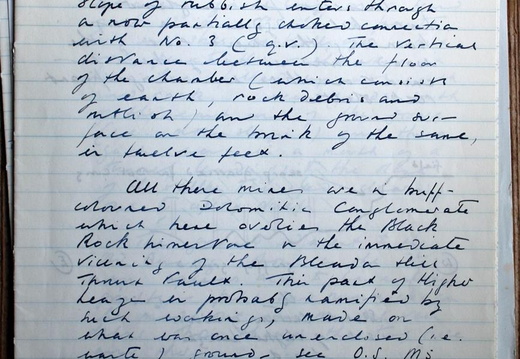 slope of rubbish enters through
a now partially choked connection
with No. 3 (q.v.). The vertical
distance between the floor
of the chamber (which consists
of earth, rock debris and
rubbish) and the ground sur-
face on the brink of the same,
is twelve feet.
All these mines are in buff-
coloured Dolomitic Conglomerate
which here overlies the Black
Rock Limestone in the immediate
vicinity of the
Thrust Fault. This part of Higher
is probably ramified by
such workings, made on
what was once unenclosed (i.e.
waste) ground - see O.S. MS